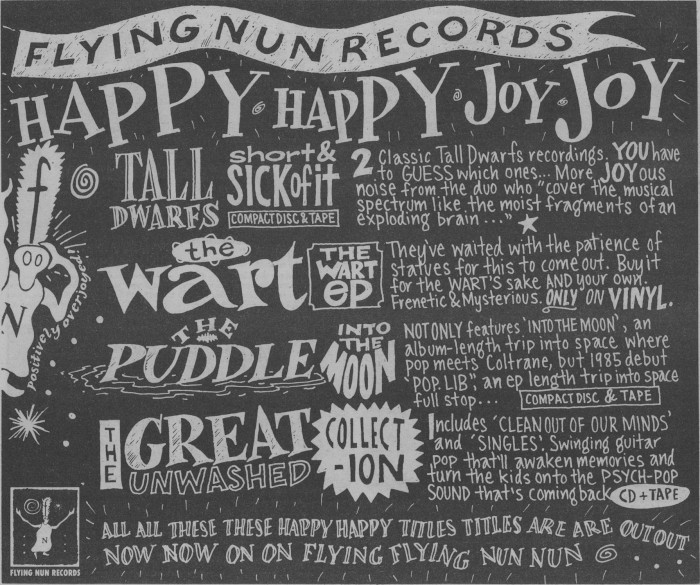 FLYING NUN RECORDS
HAPPY HAPPY JOY JOY
f
N
positively overjoyed!
TALL
DWARFS
short &
SICK of it
COMPACT DISC & TAPE
2 Classic Tall Dwarfs recordings. YOU have
to GUESS which ones... More JOYous
noise from the duo who "cover the musical
spectrum like the moist fragments of an
exploding brain ..."
the
wart
THE
WART
ep
They've waited with the patience of
statues for this to come out. Buy it
for the WART'S sake AND your own.
Frenetic & Mysterious. ONLY ON VINYL.
THE
PUDDLE
INTO
THE
MOON
NOT ONLY features 'INTO THE MOON', an
album-length trip into space where
pop meets Coltrane, but 1985 debut
'POP LIB', an ep length trip into space
full stop...
COMPACT DISC & TAPE
THE
GREAT
UNWASHED
COLLECT
-ION
Includes 'CLEAN OUT OF OUR MINDS'
and 'SINGLES'. Swinging guitar
POP that'll awaken memories and
turn the kids onto the PSYCH-POP
SOUND that's coming back
CD + TAPE
N
FLYING NUN RECORDS
ALL ALL THESE THESE HAPPY HAPPY TITLES TITLES ARE ARE OUT OUT
NOW NOW ON ON FLYING FLYING NUN NUN